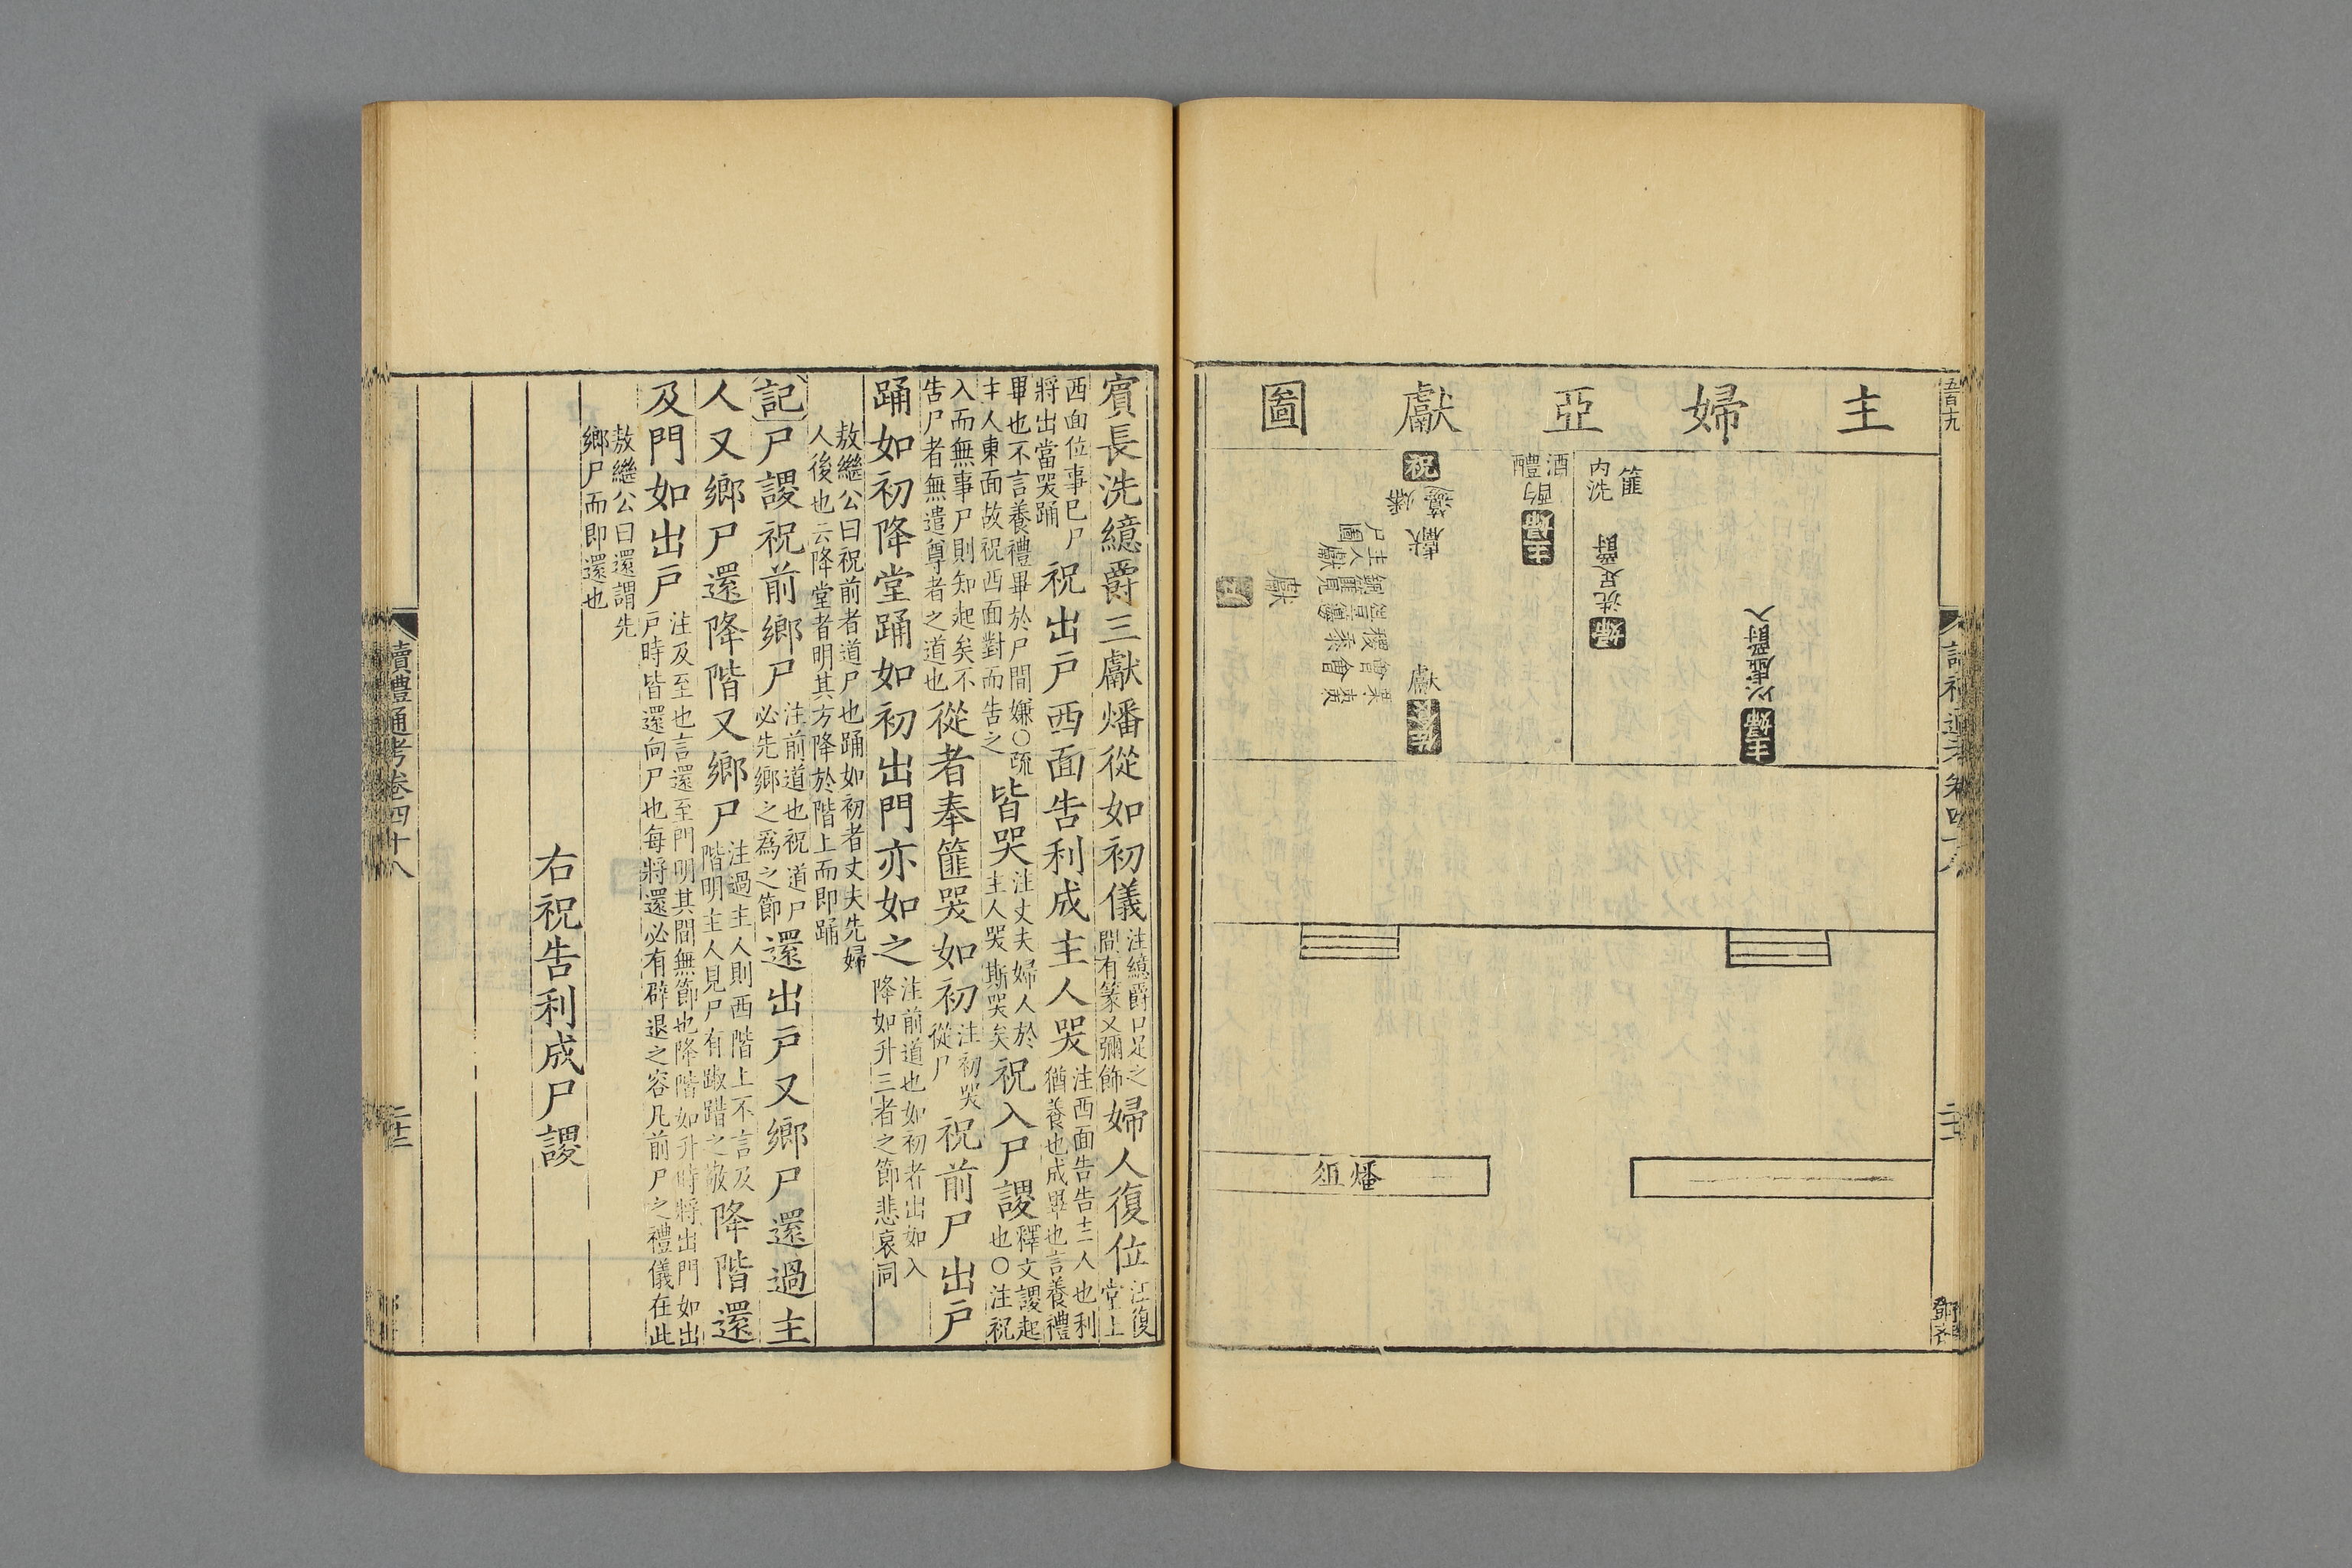 主婦亞獻圖
篚
内洗
婦洗足爵
主婦以虛爵入
酒
醴
主婦酌
祝
籩
燔
獻
尸
主人獻尸圖
獻
獻
燔俎
讀禮通考卷四十八
賓長洗繶爵三獻燔從如初儀注繶爵口足之間有篆又彌飾婦人復位注復堂上
西面位事已尸將出當哭踊祝出戶西面告利成主人哭注西面告告主人也利猶養也成畢也言養禮
畢也不言養禮畢於尸間嫌○疏主人東面故祝西面對而告之皆哭注丈夫婦人於主人哭斯哭矣祝入尸謖釋文謖起也○注祝
入而無事尸則知起矣不告尸者無遣尊者之道也從者奉篚哭如初注初哭從尸祝前尸出戶
踊如初降堂踊如初出門亦如之注前道也如初者出如入降如升三者之節悲哀同
敖繼公曰祝前者道尸也踊如初者丈夫先婦人後也云降堂者明其方降於階上而即踊
記尸謖祝前鄉尸注前道也祝道尸必先鄉之爲之節還出戶又鄉尸還過主
人又鄉尸還降階又鄉尸注過主人則西階上不言及階明主人見尸有踧踖之敬降階還
及門如出戶注及至也言還至門明其間無節也降階如升時將出門如出戶時皆還向尸也每將還必有辟退之容凡前尸之禮儀在此
敖繼公曰還謂先鄉尸而即還也
右祝告利成尸謖
讀禮通考卷四十八
二十二